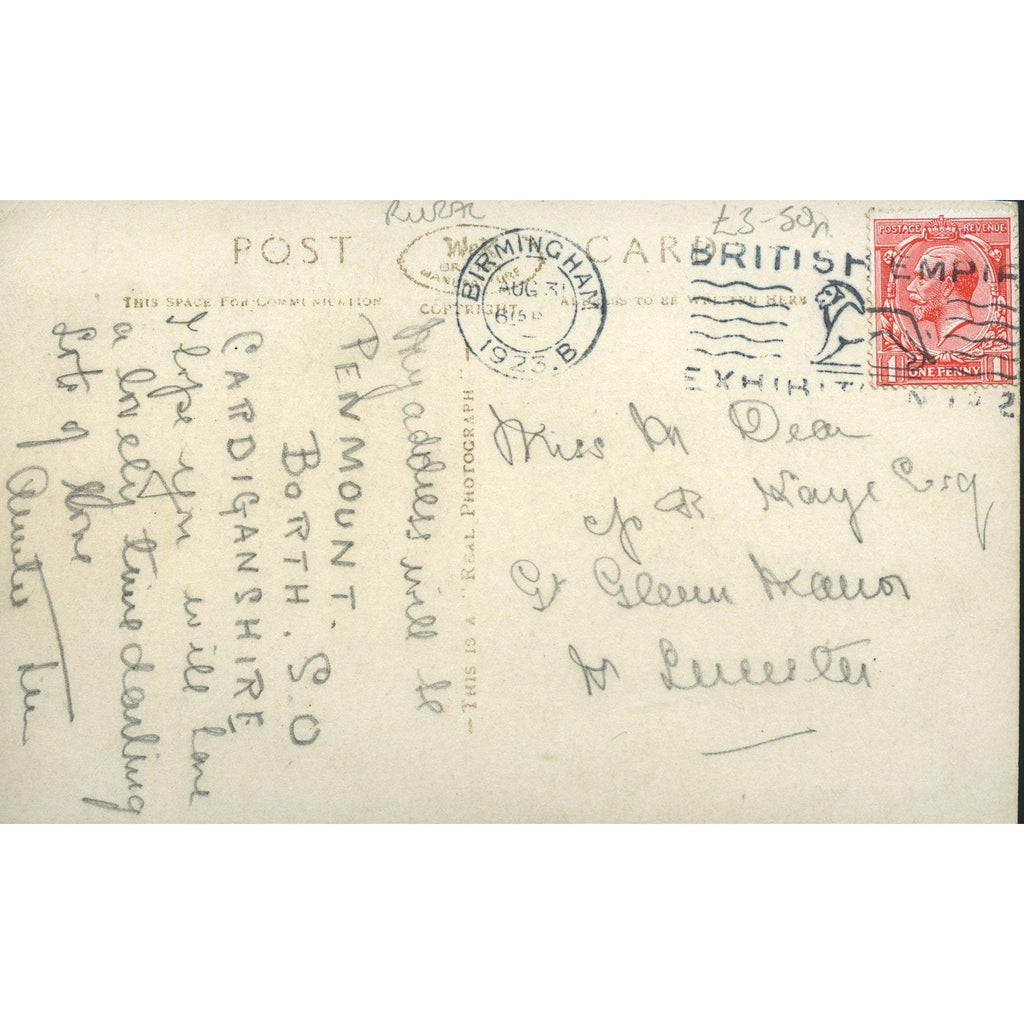 RURAL
£3-50p.
POST CARD
BIRMINGHAM
AUG 31
1923. B
BRITISH EMPIRE
EXHIBIT N 192
POSTAGE REVENUE
1 ONE PENNY 1
THIS SPACE FOR COMMUNICATION
COPYRIGHT
ADDRESS TO BE WRITTEN HERE
THIS IS A "REAL PHOTOGRAPH"
My address will be
PENMOUNT.
BORTH. S.O
CARDIGANSHIRE
I hope you will have
a lovely time darling
Lots of love
Auntie
Miss M Dear
c/o R Kaye Esq
Gt Glenn Manor
Nr Leicester